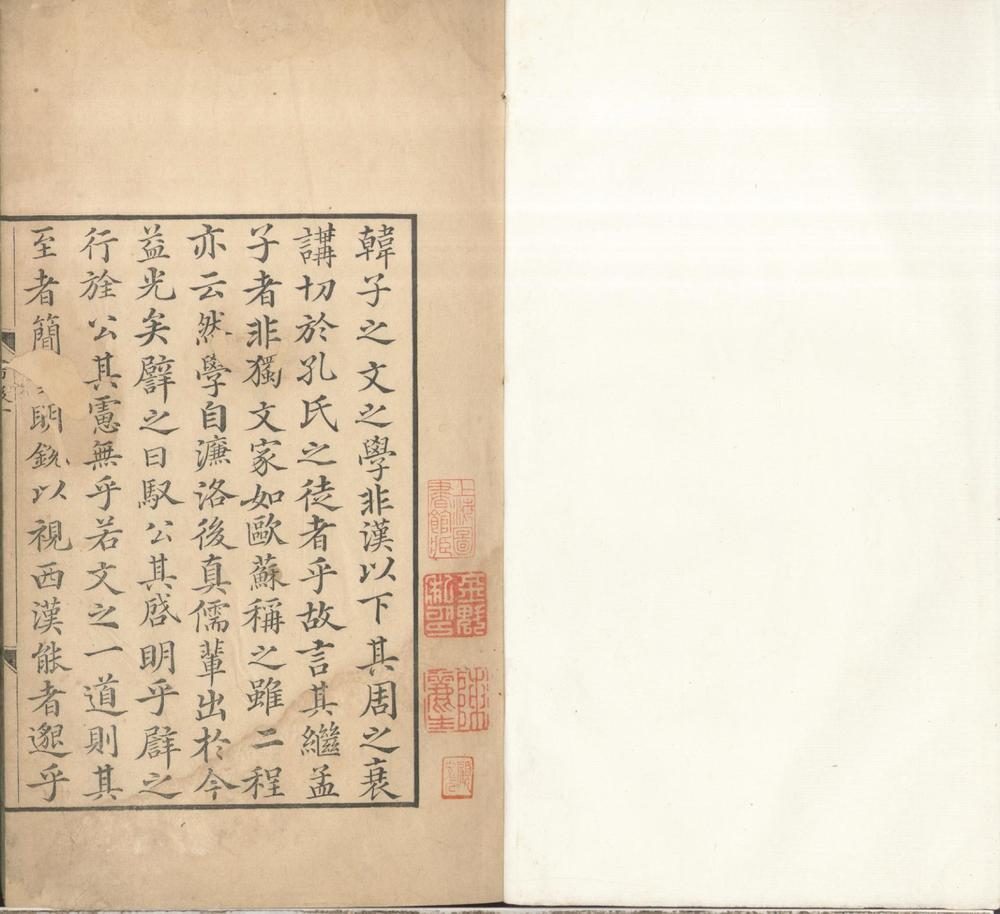 韓子之文之學非漢以下其周之衰
講切於孔氏之徒者乎故言其繼孟
子者非獨文家如歐蘇稱之雖二程
亦云然學自濂洛後真儒輩出於今
益光矣譬之日馭公其啓明乎辟之
行旌公其寭無乎若文之一道則其
至者簡明銳以視西漢能者邈乎
上海圖書館藏